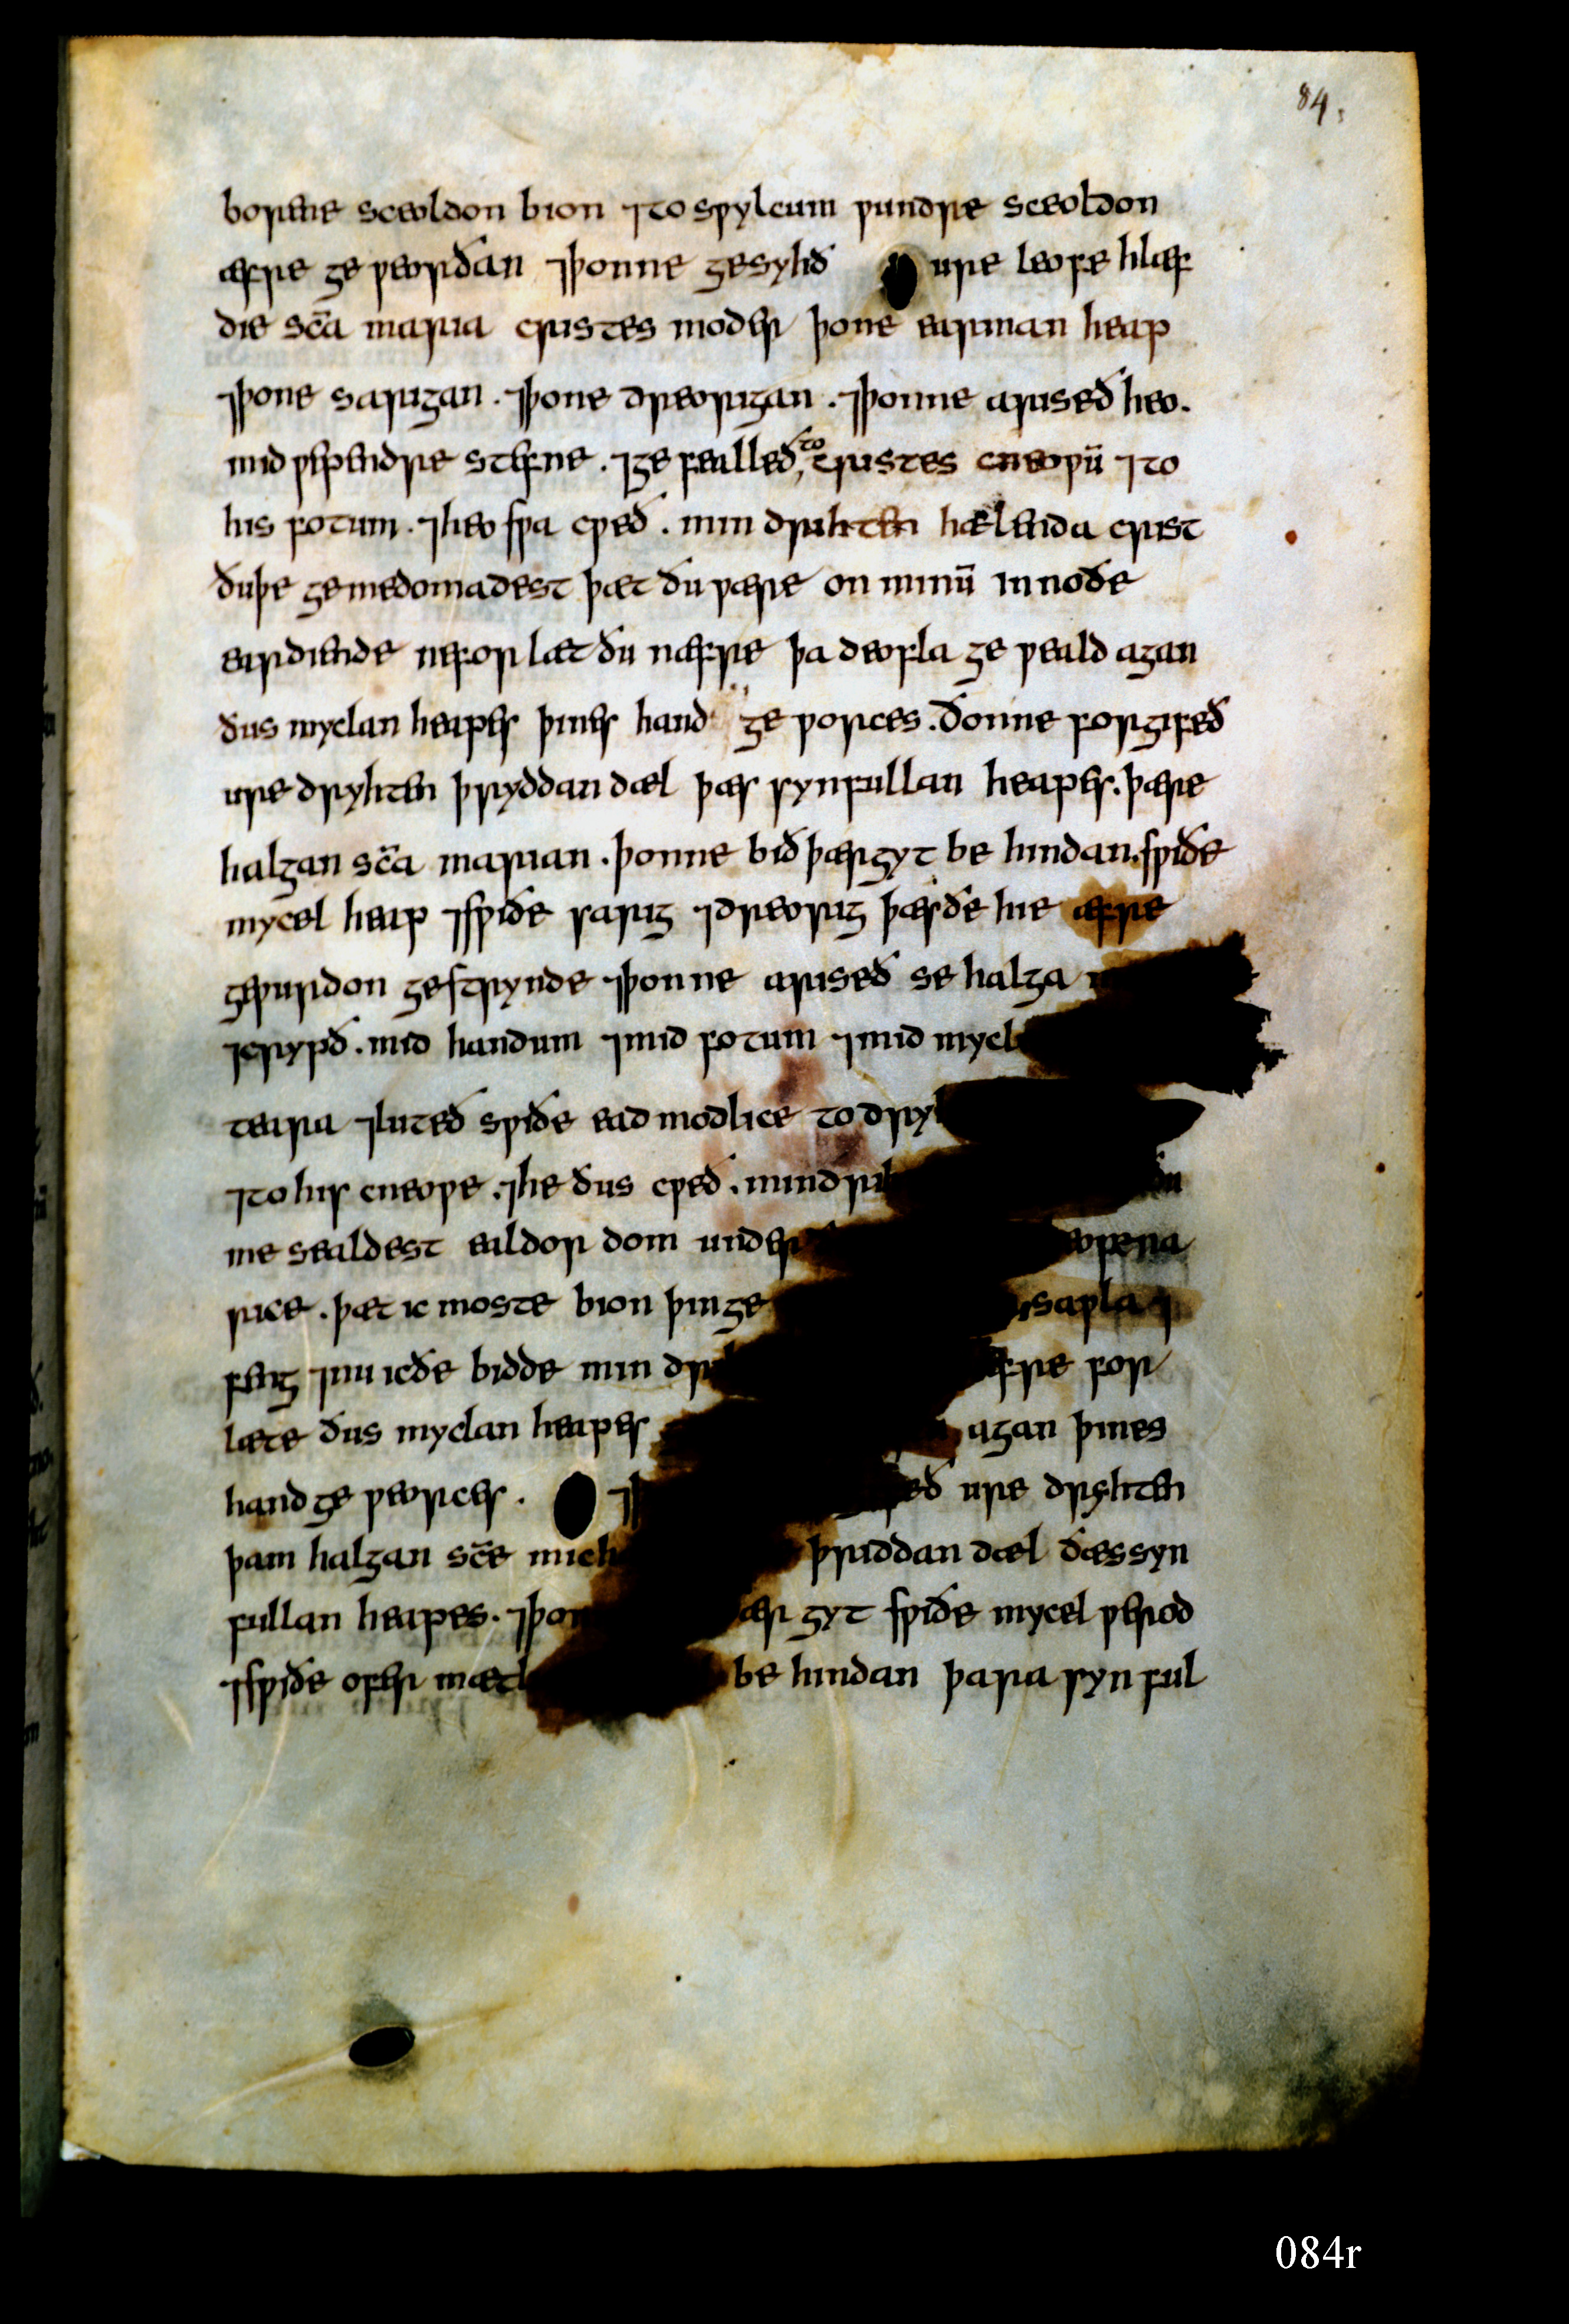 84
borene sceoldon bion ⁊ to swylcum wundre sceoldon
æfre ge weorðan ⁊ þonne gesyhð ure leofe hlæf
die sc̄a maria cristes moder þone earman heap
⁊ þone sarigan . ⁊ þone dreorigan . ⁊ þonne ariseð heo .
mid wependre stefne . ⁊ ge fealleð to cristes cneowū ⁊ to
his fotum . ⁊ heo swa cweð . min drihten hælenda crist
ðu þe ge medomadest þæt ðu wære on minū innoðe
eardiende ne forlæt ðu næfre þa deofla ge weald agan
ðus myclan heapes þines hand ge worces . ðonne forgifeð
ure dryhten þryddan dæl þæs synfullan heapes . þære
halgan sc̄a marian . þonne bið þær gyt be hindan . swiðe
mycel heap ⁊ swiðe sarig ⁊ dreorig þæs ðe hie æfre
gewurdon gestrynde ⁊ þonne ariseð se halga
⁊ crypð . mid handum ⁊ mid fotum ⁊ mid mycl
teara ⁊ luteð swiðe eadmodlice to dryh
⁊ to his cneowe . ⁊ he ðus cweð . min drih ðu
me sealdest ealdor dom under eofena
rice . þæt ic moste bion þinge sawla ⁊
feng ⁊ nu ic ðe bidde min drih æfre for
læte ðus myclan heapes agan þines
hand ge weorces . ⁊ þ eð ure dryhten
þam halgan sc̄e mich þriddan dæl ðæs syn
fullan heapes . ⁊ þon ær gyt swiðe mycel werod
⁊ swiðe ofer mætl be hindan þara synful
084r